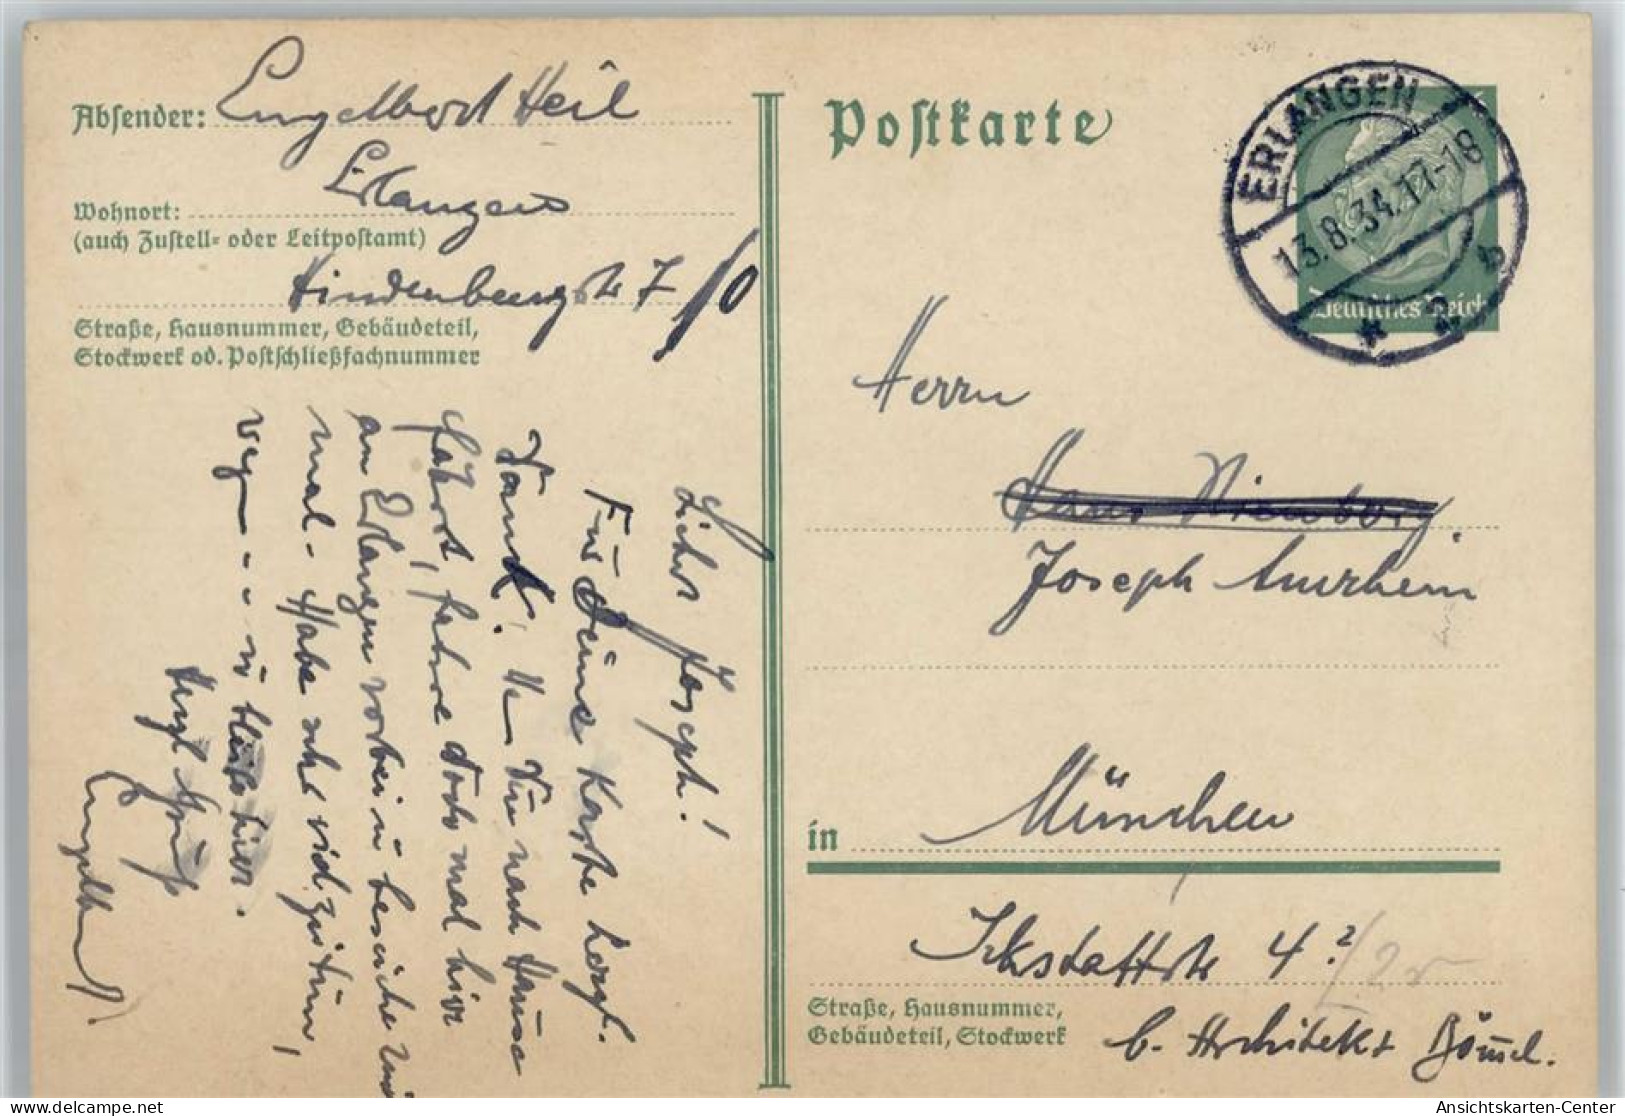 Absender: Engelbert Heil
Erlangen
Wohnort:
(auch Zustell- oder Leitpostamt)
Hindenburgstr 7/0
Straße, Hausnummer, Gebäudeteil,
Stockwerk od. Postschließfachnummer
Lieber Joseph!
Für Deine Karte herzl.
Dank! Wenn Du nach Hause
fährst, fahre doch mal hier
an Erlangen vorbei u besuche mich
mal - Habe sehr viel Zeit nun,
u bleibe hier.
Herzl Grüße
Engelbert.
Postkarte
ERLANGEN
13.8.34.17-18
Deutsches Reich
Herrn
Joseph Amrhein
in München
Ickstattstr 4 2
Straße, Hausnummer,
Gebäudeteil, Stockwerk
b. Architekt
Ansichtskarten-Center